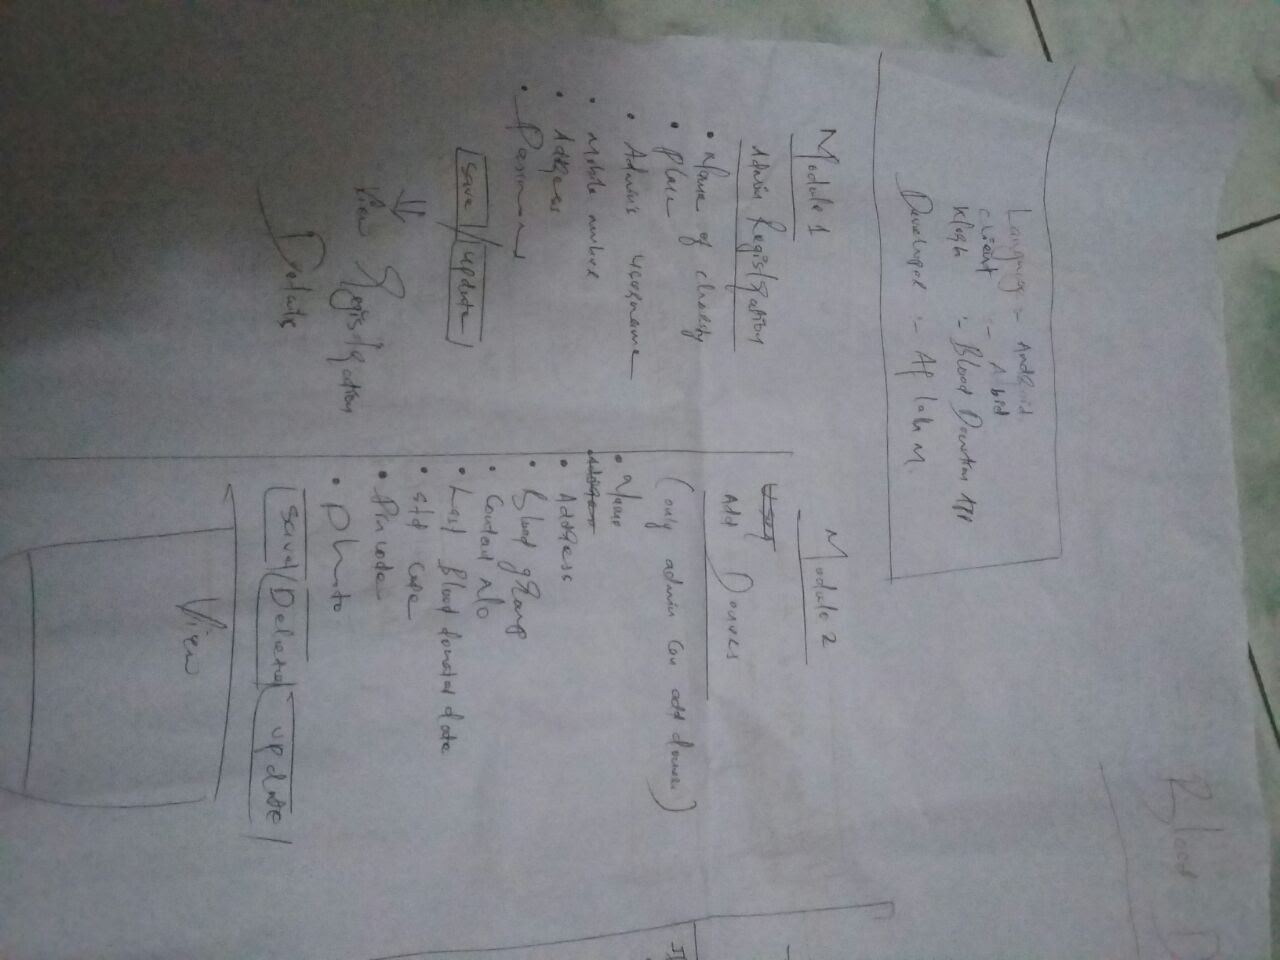 Blood D
Language :- Android
client :- Abid
:- Blood Donation
Developer :- Aflah M
Module 1
Admin Registration
• Name of charity
• place
• Admin's username
• Mobile number
• Address
•
save / update
View Registration
Details
Module 2
Add Donors
(only admin can add donor)
• Name
• Address
• Blood group
• Contact No
• Last Blood donated date
• std code
• Pincode
• Photo
Save / Delete / update /
View